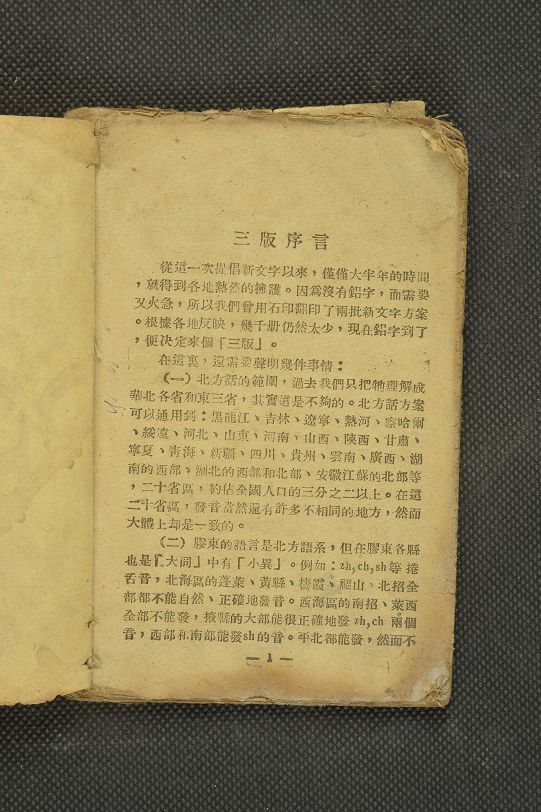 三版序言
從這一次提倡新文字以來，僅僅大半年的時間
，就得到各地熱烈的擁護。因爲沒有鉛字，而需要
又火急，所以我們曾用石印翻印了兩批新文字方案
。根據各地反映，幾千册仍然太少，現在鉛字到了
，便决定來個「三版」。
在這裏，還需要聲明幾件事情：
（一）北方話的範圍，過去我們只把牠理解成
華北各省和東三省，其實這是不夠的。北方話方案
可以通用到：黑龍江、吉林、遼寧、熱河、察哈爾
、綏遠、河北、山東、河南、山西、陝西、甘肅、
寧夏、靑海、新疆、四川、貴州、雲南、廣西、湖
南的西部、湖北的西部和北部、安徽江蘇的北部等
，二十省區，約佔全國人口的三分之二以上。在這
二十省區，發音當然還有許多不相同的地方，然而
大體上却是一致的。
（二）膠東的語言是北方語系，但在膠東各縣
也是「大同」中有「小異」。例如：zh,ch,sh等捲
舌音，北海區的蓬萊、黃縣、棲霞、福山、北招全
部都不能自然、正確地發音。西海區的南招、萊西
全部不能發，掖縣的大部能很正確地發zh,ch兩個
音，西部和南部能發sh的音。平北部能發，然而不
— 1 —